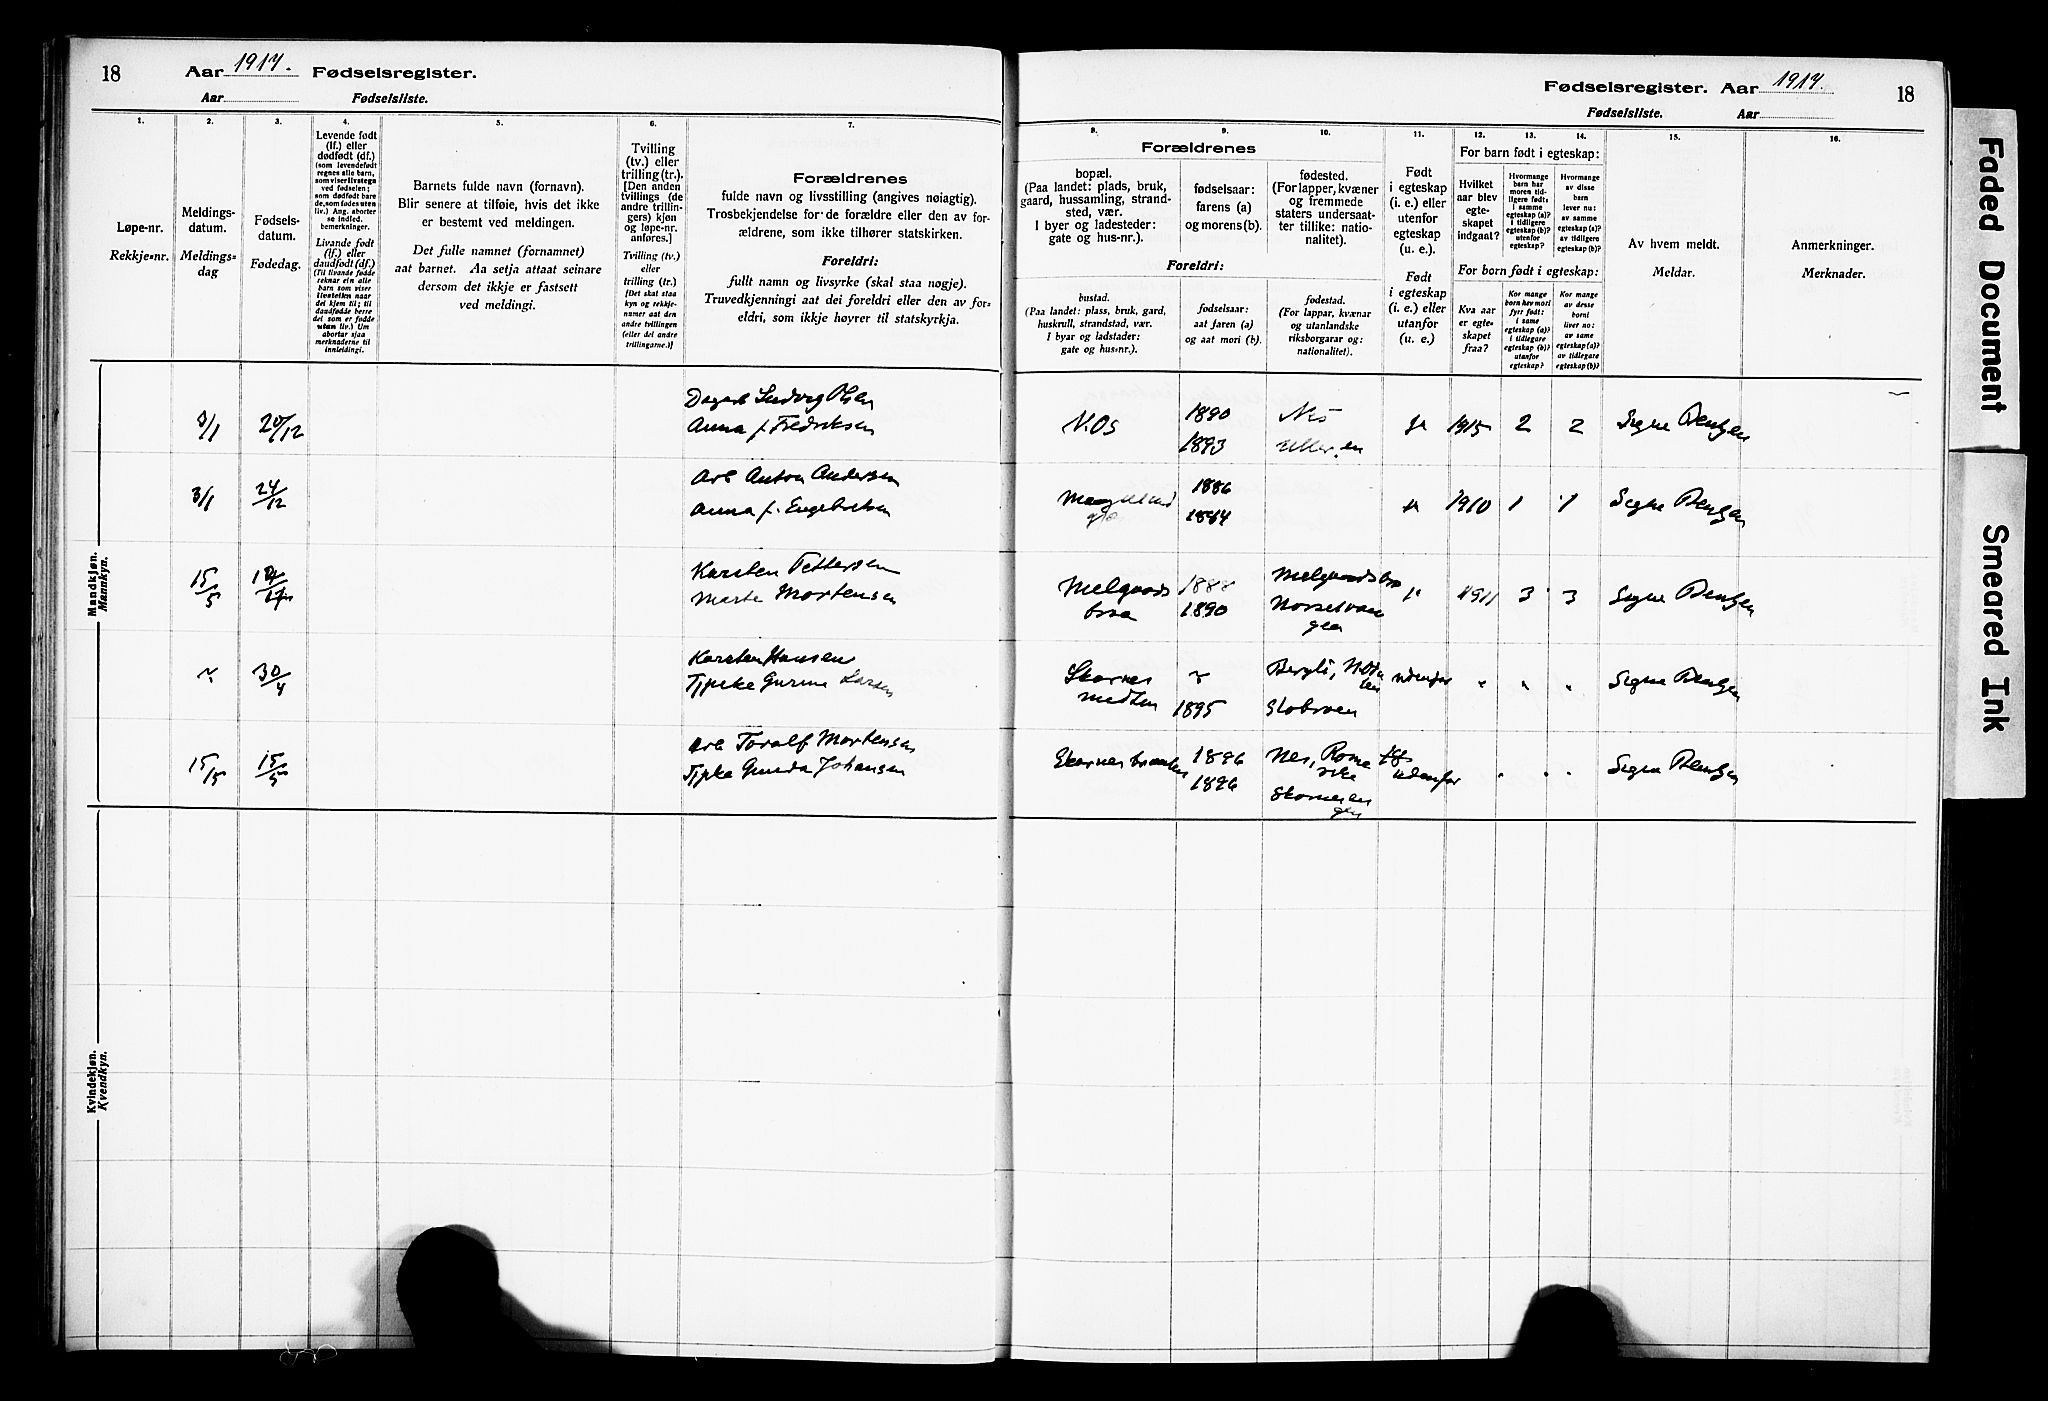 18
Aar 1917. Fødselsregister.
Aar Fødselsliste.
1.
Løpe-nr.
Rekkje-nr.
2.
Meldings-
datum.
Meldings-
dag
3.
Fødsels-
datum.
Fødedag.
4.
Levende født
(lf.) eller
dødfødt (df.)
(som levendefødt
regnes alle barn,
som viser livstegn
ved fødselen;
som dødfødt bare
de, som fødes uten
liv.) Ang. aborter
se indled.
bemerkninger.
Livande født
(lf.) eller
daudfødt (df.)
(Til livande fødde
reknar ein alle
barn som viser
livsteikn naar
dei kjem til; til
daudfødde berre
dei som er fødde
utan liv.) Um
abortar sjaa
merknaderne til
innleidingi.
5.
Barnets fulde navn (fornavn).
Blir senere at tilføie, hvis det ikke
er bestemt ved meldingen.
Det fulle namnet (fornamnet)
aat barnet. Aa setja attaat seinare
dersom det ikkje er fastsett
ved meldingi.
6.
Tvilling
(tv.) eller
trilling (tr.).
[Den anden
tvillings (de
andre trillin-
gers) kjøn
og løpe-nr.
anføres.]
Tvilling (tv.)
eller
trilling (tr.)
[Det skal staa
kyn og rekkje-
numer aat den
andre tvillingen
(eller dei andre
trillingarne.)]
7.
Forældrenes
fulde navn og livsstilling (angives nøiagtig).
Trosbekjendelse for de forældre eller den av for-
ældrene, som ikke tilhører statskirken.
Foreldri:
fullt namn og livsyrke (skal staa nøgje).
Truvedkjenningi aat dei foreldri eller den av for-
eldri, som ikkje høyrer til statskyrkja.
Mandkjøn.
Mannkyn.
3/1 20/12 Ludvig Olsen
Anna f. Fredriksen
3/1 24/12 Anton Andersen
Anna f. Engebretsen
15/5 Karsten Pettersen
Marte Mortensen
30/4 Karsten Hansen
Larsen
15/5 15/5 Toralf Mortensen
Gunda Johansen
Kvindekjøn.
Kvendkyn.
Fødselsregister. Aar 1917.
18
Fødselsliste. Aar
8.
9.
10.
Forældrenes
bopæl.
(Paa landet: plads, bruk,
gaard, hussamling, strand-
sted, vær.
I byer og ladesteder:
gate og hus-nr.).
fødselsaar:
farens (a)
og morens (b).
fødested.
(For lapper, kvæner
og fremmede
staters undersaat-
ter tillike: natio-
nalitet).
Foreldri:
bustad.
(Paa landet: plass, bruk, gard,
huskrull, strandstad, vær.
I byar og ladstader:
gate og hus-nr.).
fødselsaar:
aat faren (a)
og aat mori (b).
fødestad.
(For lappar, kvænar
og utanlandske
riksborgarar og:
nationalitet).
11.
Født
i egteskap
(i. e.) eller
utenfor
egteskap
(u. e.).
Født
i egteskap
(i. e.) eller
utanfor
(u. e.)
12.
13.
14.
For barn født i egteskap:
Hvilket
aar blev
egte-
skapet
indgaat?
Hvormange
barn har
moren tid-
ligere født:
i samme
egteskap (a)?
i tidligere
egteskap (b)?
utenfor
egteskap?
Hvormange
av disse
barn
lever nu:
av samme
egteskap (a)?
av tidligere
egteskap (b)?
For born født i egteskap:
Kva aar
er egte-
skapet
fraa?
Kor mange
born hev mori
fyrr født:
i same
egteskap (a)?
i tidlegare
egteskap (b)?
utanfor
egteskap?
Kor mange
av desse
borni
liver no:
av same
egteskap (a)?
av tidlegare
egteskap (b)?
15.
Av hvem meldt.
Meldar.
16.
Anmerkninger.
Merknader.
N. Os 1890 Nes 1915 2 2 Signe Bentzen
1893
1886 1910 1 1 Signe Bentzen
1884
1888 1911 3 3 Signe Bentzen
1890
Skarnes Bergli, udenfor " " " Signe Bentzen
1895
1896 Nes, Rome
rike udenfor " " " Signe Bentzen
1896
Faded Document
Smeared Ink